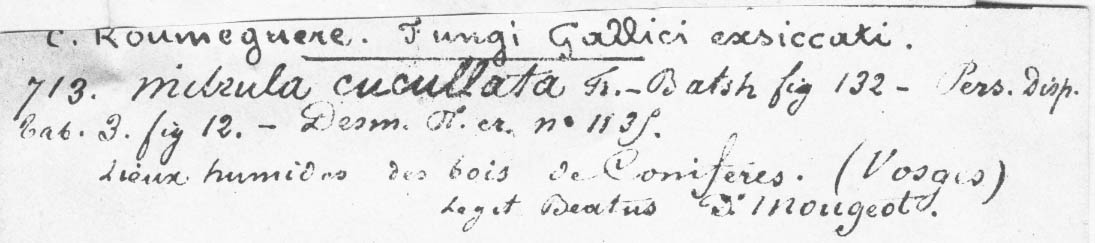 C. Roumeguere. Fungi Gallici exsiccati.
713. Mitrula cucullata Fr. - Batsh fig 132 - Pers. Disp.
tab. 3. fig 12. - Desm. Pl. cr. no 1135.
Lieux humides des bois de Conifères. (Vosges)
Legit Beatus Dr Mougeot.